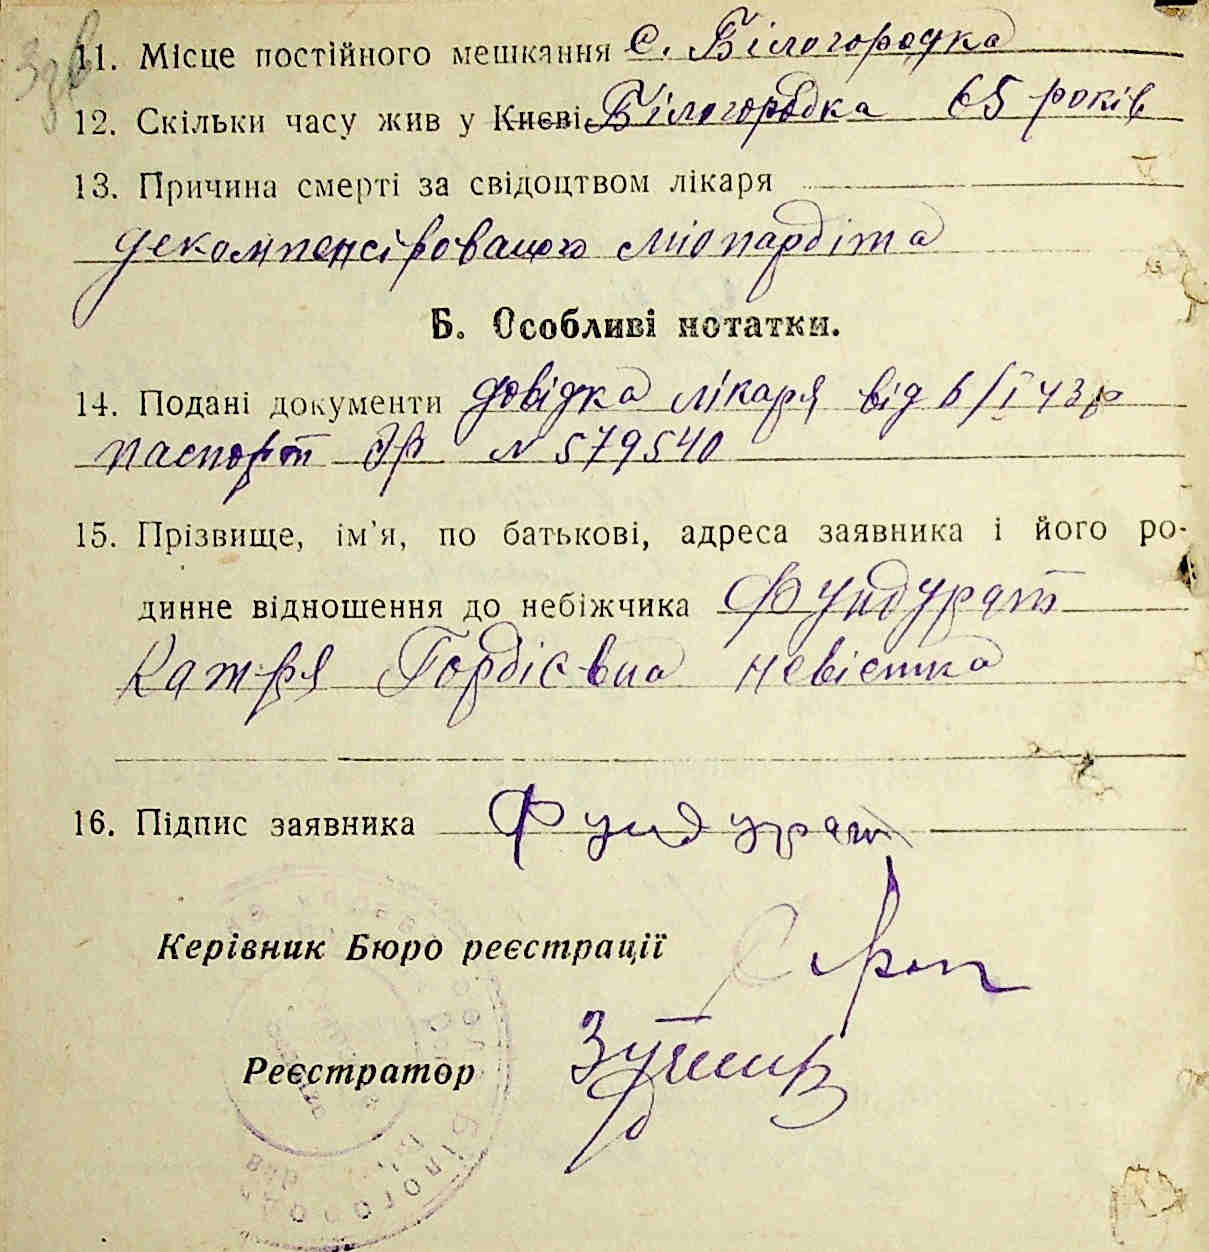 11. Місце постійного мешкання с. Білогородка
12. Скільки часу жив у Києві Білогородка 65 років
13. Причина смерті за свідоцтвом лікаря
декомпенсірованого міокардіта
Б. Особливі нотатки.
14. Подані документи довідка лікаря від 6/I 43р
паспорт № 579540
15. Прізвище, ім'я, по батькові, адреса заявника і його ро-
динне відношення до небіжчика Фундурат
Катря Гордієвна невістка
16. Підпис заявника Фундурат
Керівник Бюро реєстрації
Реєстратор